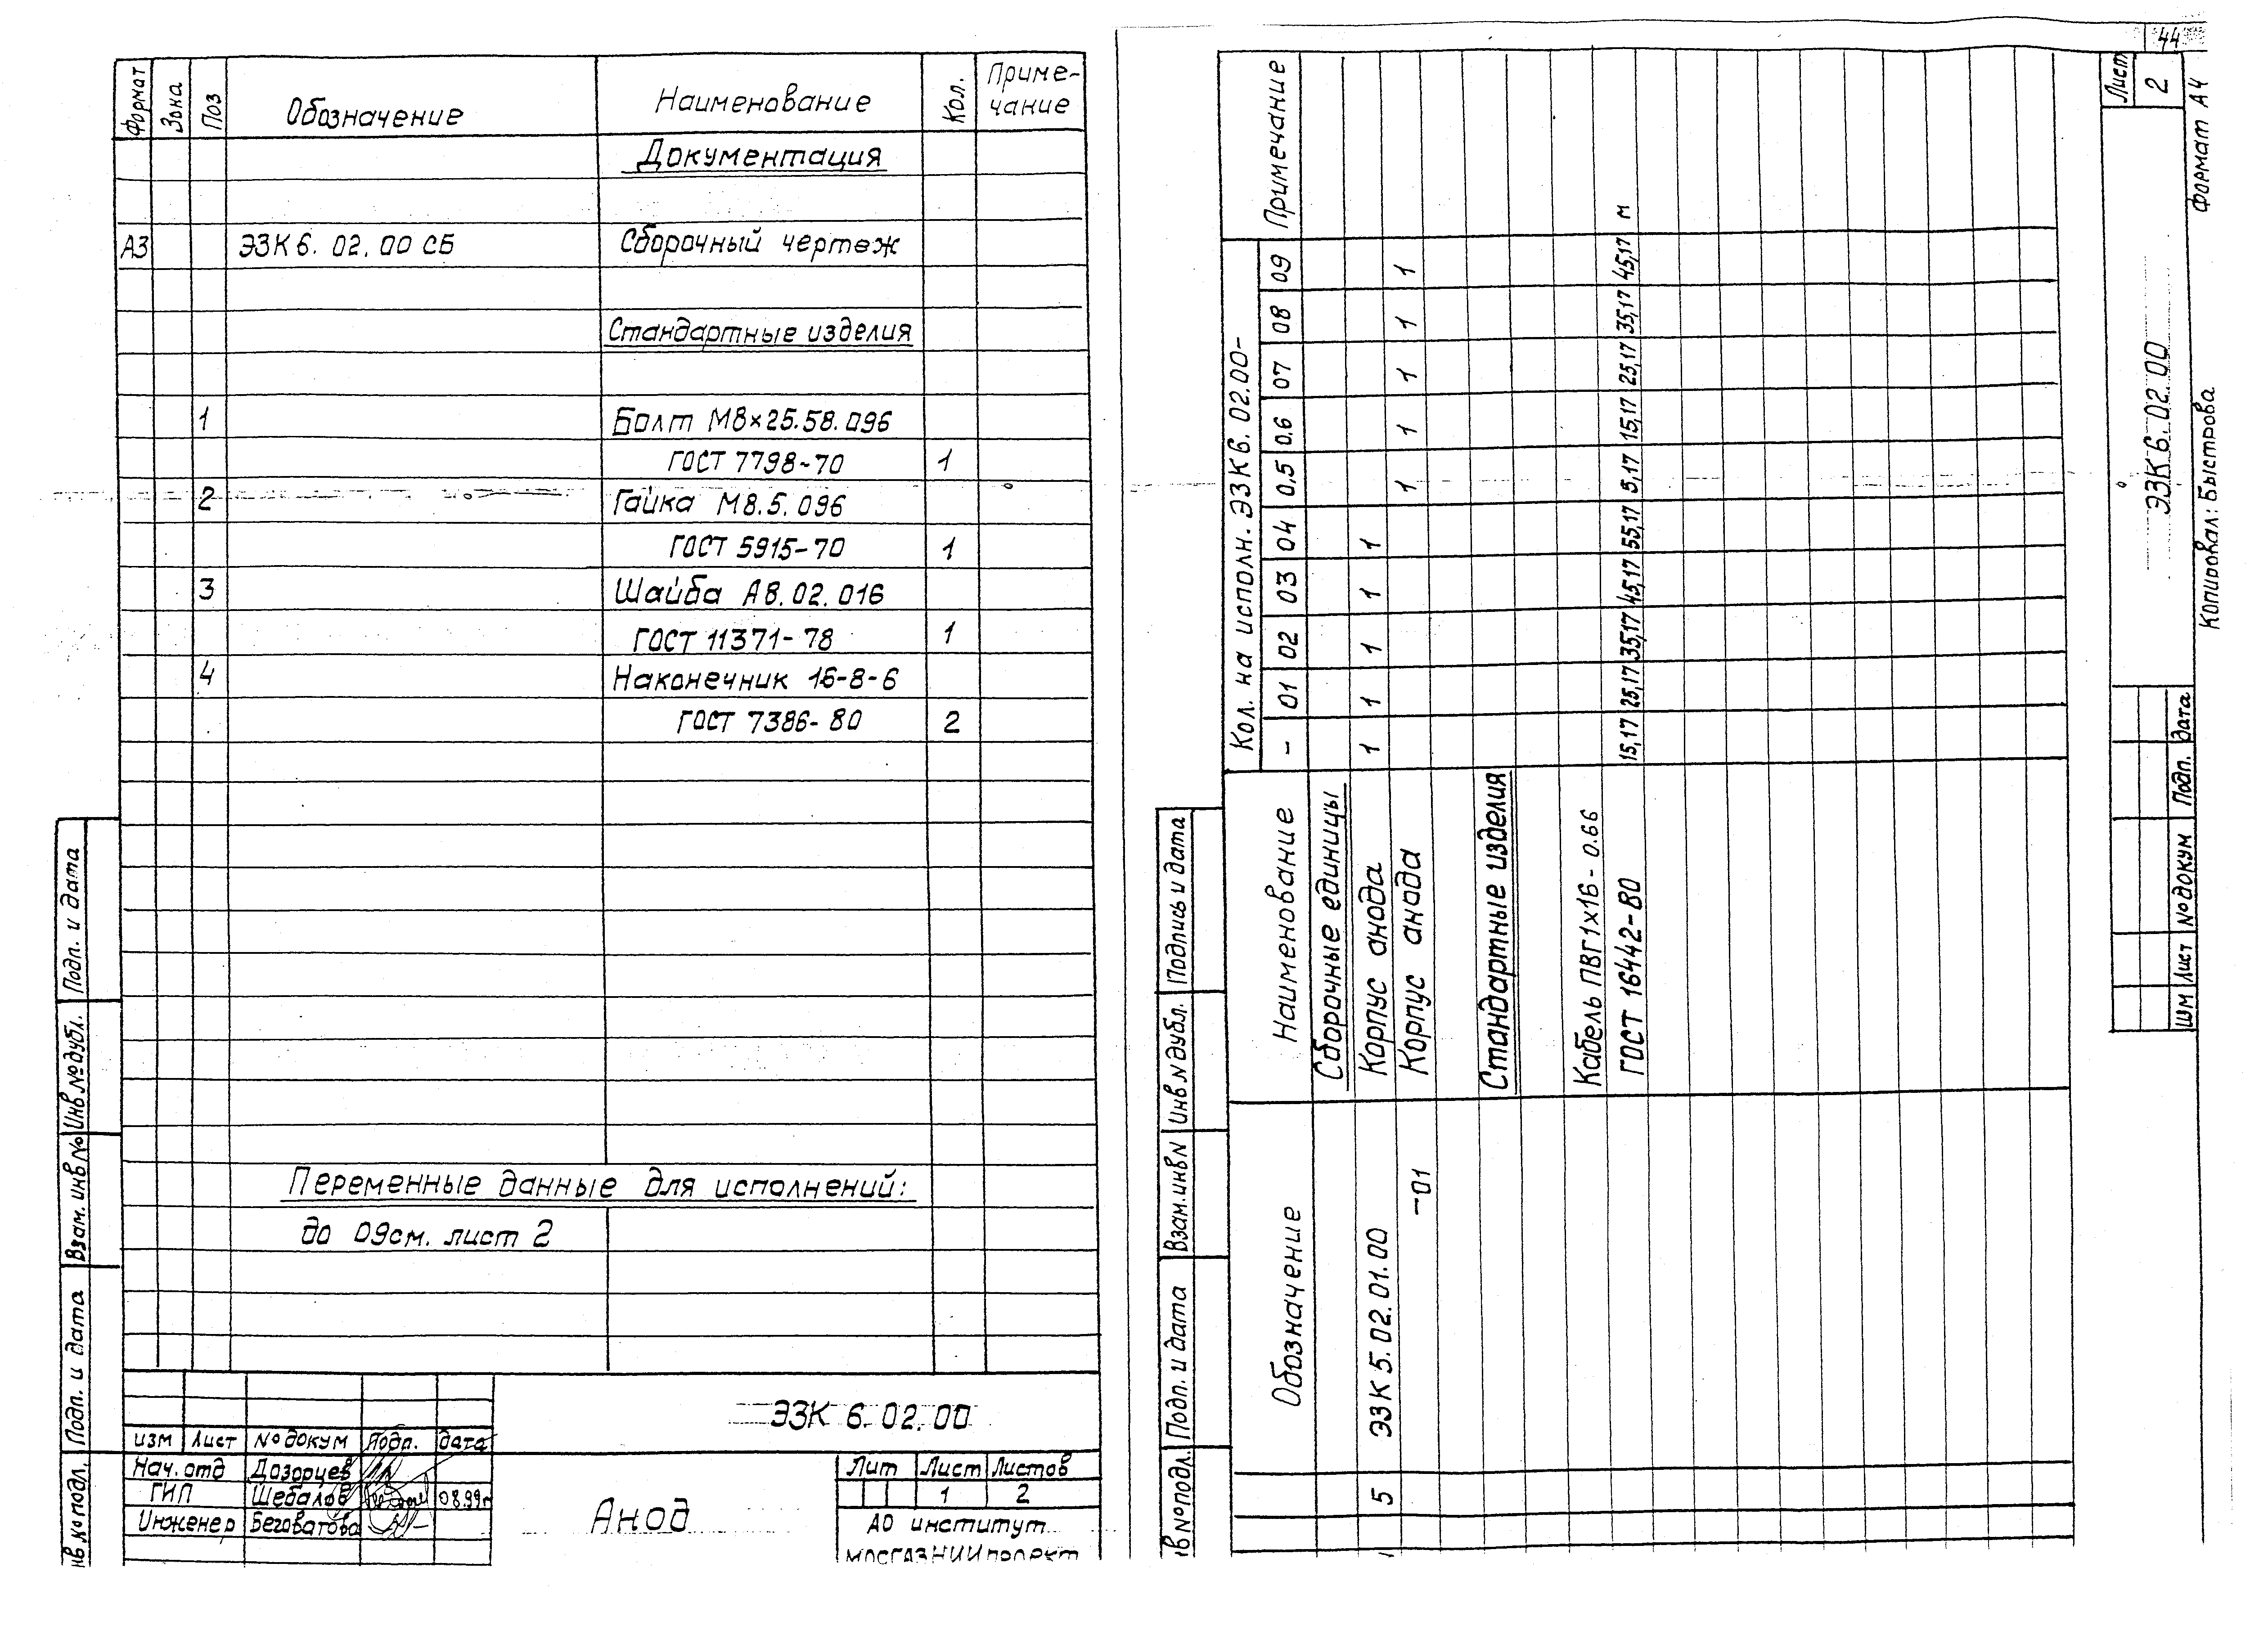 Формат Зона Поз Обозначение Наименование Кол. Приме-
чание
Документация
А3 ЭЗК 6. 02. 00 СБ Сборочный чертеж
Стандартные изделия
1 Болт М8×25.58.096
ГОСТ 7798-70 1
2 Гайка М8.5.096
ГОСТ 5915-70 1
3 Шайба А8.02.016
ГОСТ 11371-78 1
4 Наконечник 16-8-6
ГОСТ 7386-80 2
Переменные данные для исполнений:
до 09 см. лист 2
ЭЗК 6.02.00
изм Лист № докум Подп. дата
Нач. отд Дозорцев
ГИП Шебалов 08.99г
Инженер Беговатова
Анод
Лит Лист Листов
1 2
АО институт
МОСГАЗНИИпроект
Подп. и дата
Инв № дубл.
Взам. инв №
Подп. и дата
нв № подл.
44
Обозначение Наименование Кол. на исполн. ЭЗК 6. 02.00- Примечание
- 01 02 03 04 0,5 0,6 07 08 09
Сборочные единицы
5 ЭЗК 5. 02. 01. 00 Корпус анода 1 1 1 1 1
-01 Корпус анода 1 1 1 1 1
Стандартные изделия
Кабель ПВГ1х16-0.66
ГОСТ 16442-80 15,17 25,17 35,17 45,17 55,17 5,17 15,17 25,17 35,17 45,17 м
Подпись и дата
Инв N дубл.
Взам. инв N
Подп. и дата
нв № подл.
ШМ Лист № докум Подп. Дата
ЭЗК 6. 02. 00
Лист
2
Копировал: Быстрова Формат А4